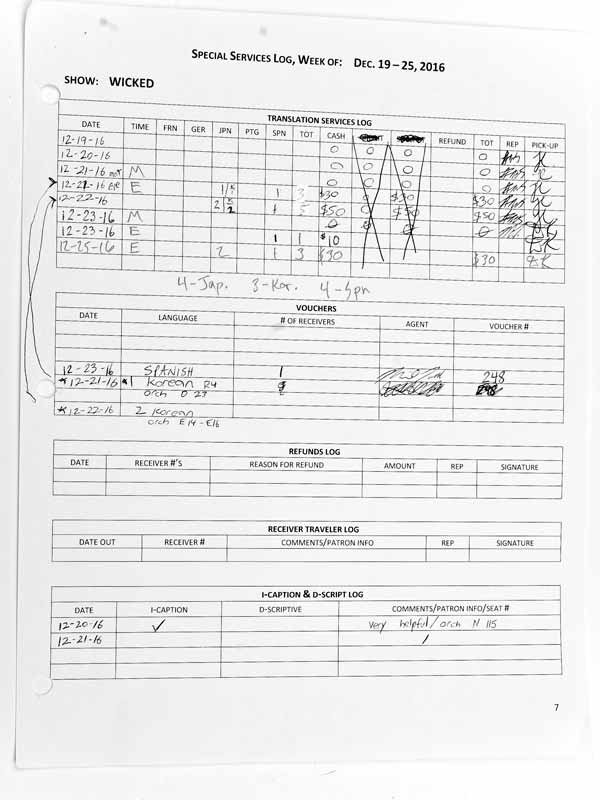 SPECIAL SERVICES LOG, WEEK OF: DEC. 19 – 25, 2016
SHOW: WICKED
TRANSLATION SERVICES LOG
DATE TIME FRN GER JPN PTG SPN TOT CASH REFUND TOT REP PICK-UP
12-19-16 0 0 0 0
12-20-16 0 0 0 0
12-21-16 M 0 0 0 0
12-21-16 E 1/K 1 3 $30 $30 $30
12-22-16 2 K/2 1 5 $50 $50 $50
12-23-16 M 0 0 0
12-23-16 E 1 1 $10
12-25-16 E 2 1 3 $30 $30
4-Jap. 3-Kor. 4-Spn
VOUCHERS
DATE LANGUAGE # OF RECEIVERS AGENT VOUCHER #
12-23-16 SPANISH 1 248
*12-21-16 *1 Korean R4
orch D 27
*12-22-16 2 Korean
orch E14-E16
REFUNDS LOG
DATE RECEIVER #'S REASON FOR REFUND AMOUNT REP SIGNATURE
RECEIVER TRAVELER LOG
DATE OUT RECEIVER # COMMENTS/PATRON INFO REP SIGNATURE
I-CAPTION & D-SCRIPT LOG
DATE I-CAPTION D-SCRIPTIVE COMMENTS/PATRON INFO/SEAT #
12-20-16 ✓ Very helpful/orch N 115
12-21-16 /
7